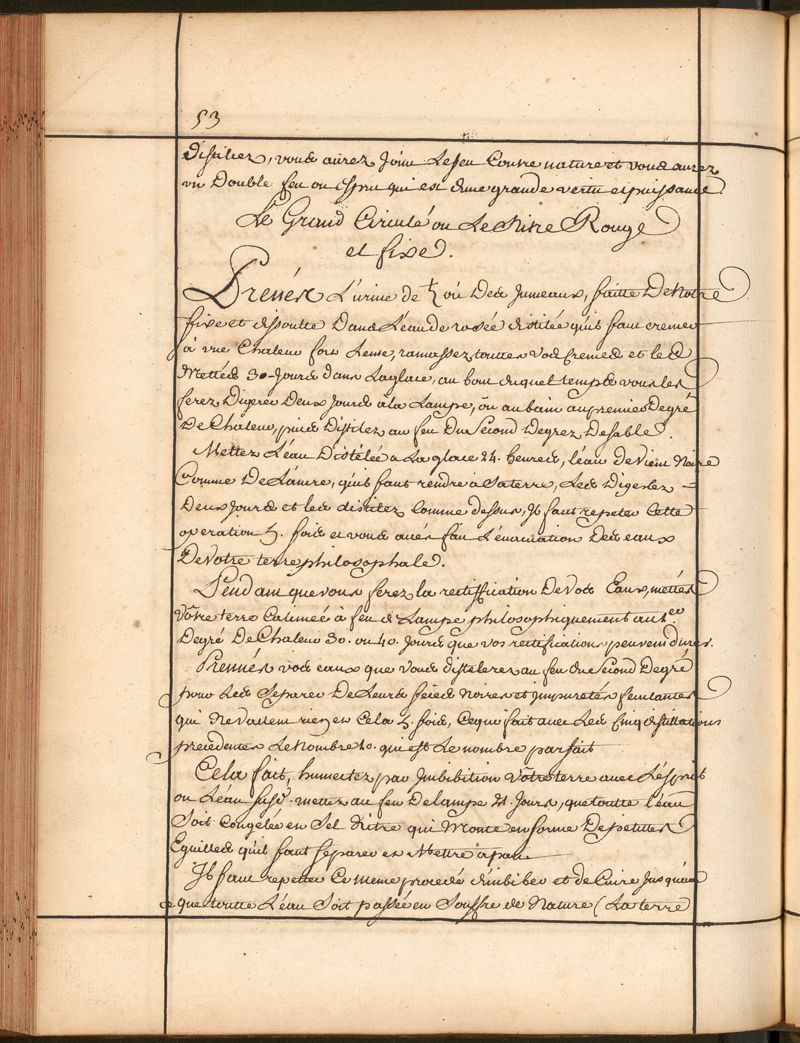 53
distilez, vous aurez joint Le feu Contre nature et vous aurez
un Double feu ou esprit qui est d'une grande vertu et puissance
Le Grand Circulé ou Le Nitre Rouge
et fixe.
Prenéz L'urine de ♄ ou Des Jumeaux, faitte De Notre
fixe et dissoutte Dans L'eau de rosée distilée quil faut cremer
à une Chaleur fort Lente, ramassez touttes vos cremes et les
Mettes 30 Jours dans La glace, au bout duquel temps vous les
ferez Digerer Deux Jours à la Lampe, ou au bain au premier Degré
De Chaleur, puis Distilez au feu Du Second Degrez De sable.
Mettez L'eau Distelée a La glace 24. heures, l'eau devient Noire
Comme De L'ancre, quil faut rendre à Sa terre, Les Digerez
Deux Jours et les distilez Comme dessus, Il faut repeter Cette
operation 5. fois et vous aurés fait L'évacuation Des eaux
De Votre terre philosophale.
Pendant que vous ferez la rectiffication De Vos Eaux, mettés
vôtre terre Calcinée à feu de Lampe philosophiquement au 1.er
Degré De Chaleur 30. ou 40. Jours que vos rectifications peuvent durer.
Prennés vos eaux que Vous distelerez au feu du Second Degré
pour Les Separer De Leurs feces Noires et impuretés feculantes
qui Ne valent rien en Cela 5. fois, Ce qui fait avec Les Cinq distillations
precedentes Le Nombre 10. qui est Le nombre parfait
Cela fait, humectez par Imbibition vôtre terre avec L'Esprit
ou L'eau susd. mettez au feu De lampe 21. Jours, que toutte l'eau
Soit Congelée en Sel Nitre qui Monte en forme De petittes
Eguilles quil faut separer et Mettre a part
Il faut repetter Ce meme procedé d'imbiber et de Cuire Jusqu'à
ce que toutte L'eau Soit passée en Souffre de Nature (La terre